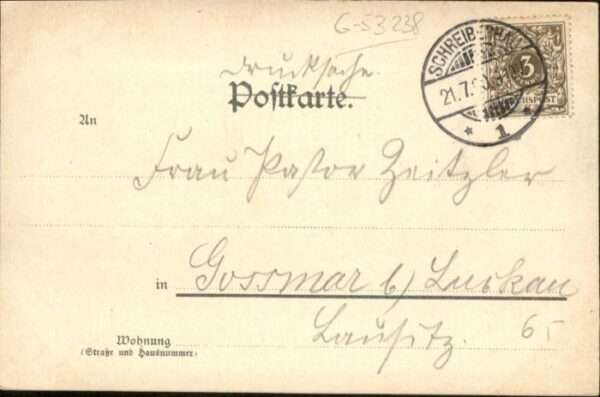 G-53238
SCHREIBERHAU
21.7.
1
3
REICHSPOST
Drucksache.
Postkarte.
An
Frau Pastor Zeitzler
in Gossmar b/ Luckau
Lausitz.
65
Wohnung
(Straße und Hausnummer)